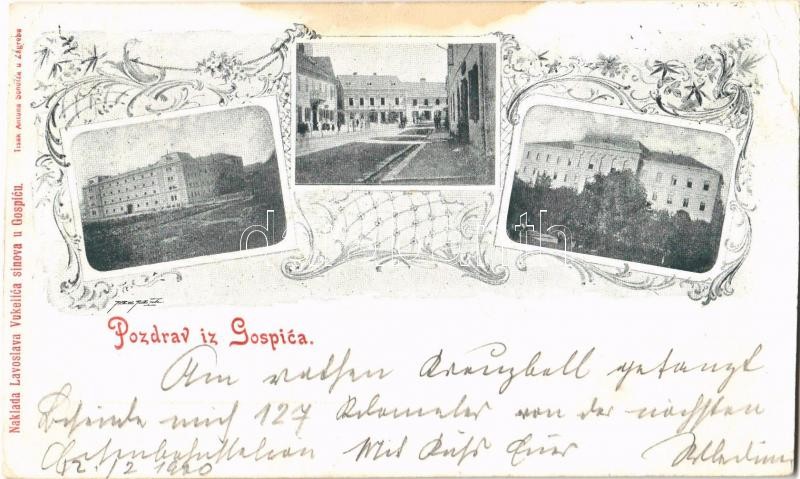 Tisak Antuna Scholza u Zagrebu
Naklada Lavoslava Vukelića sinova u Gospiću.
Pozdrav iz Gospića.
Am rothen Kreuzball getanzt
mich 127 Kilometer von der nächsten
Mit Kuss Euer
12. /2 1900